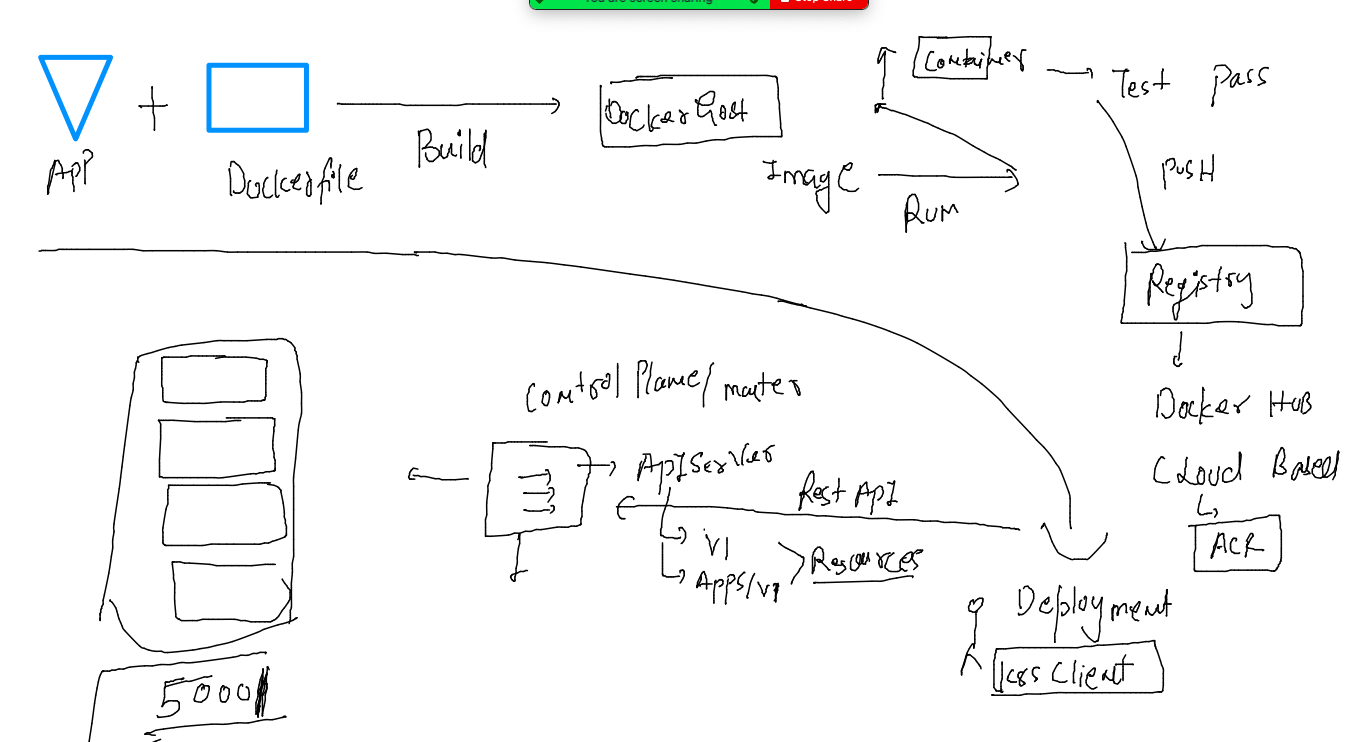 You are screen sharing Stop Share
App
+
Dockerfile
Build
Docker Host
Image
Run
Container
Test Pass
PUSH
Registry
Docker HUB
Cloud Based
ACR
Control Plane/master
ApI Server
Rest ApI
V1
Apps/v1
Resources
Deployment
K8s Client
5000